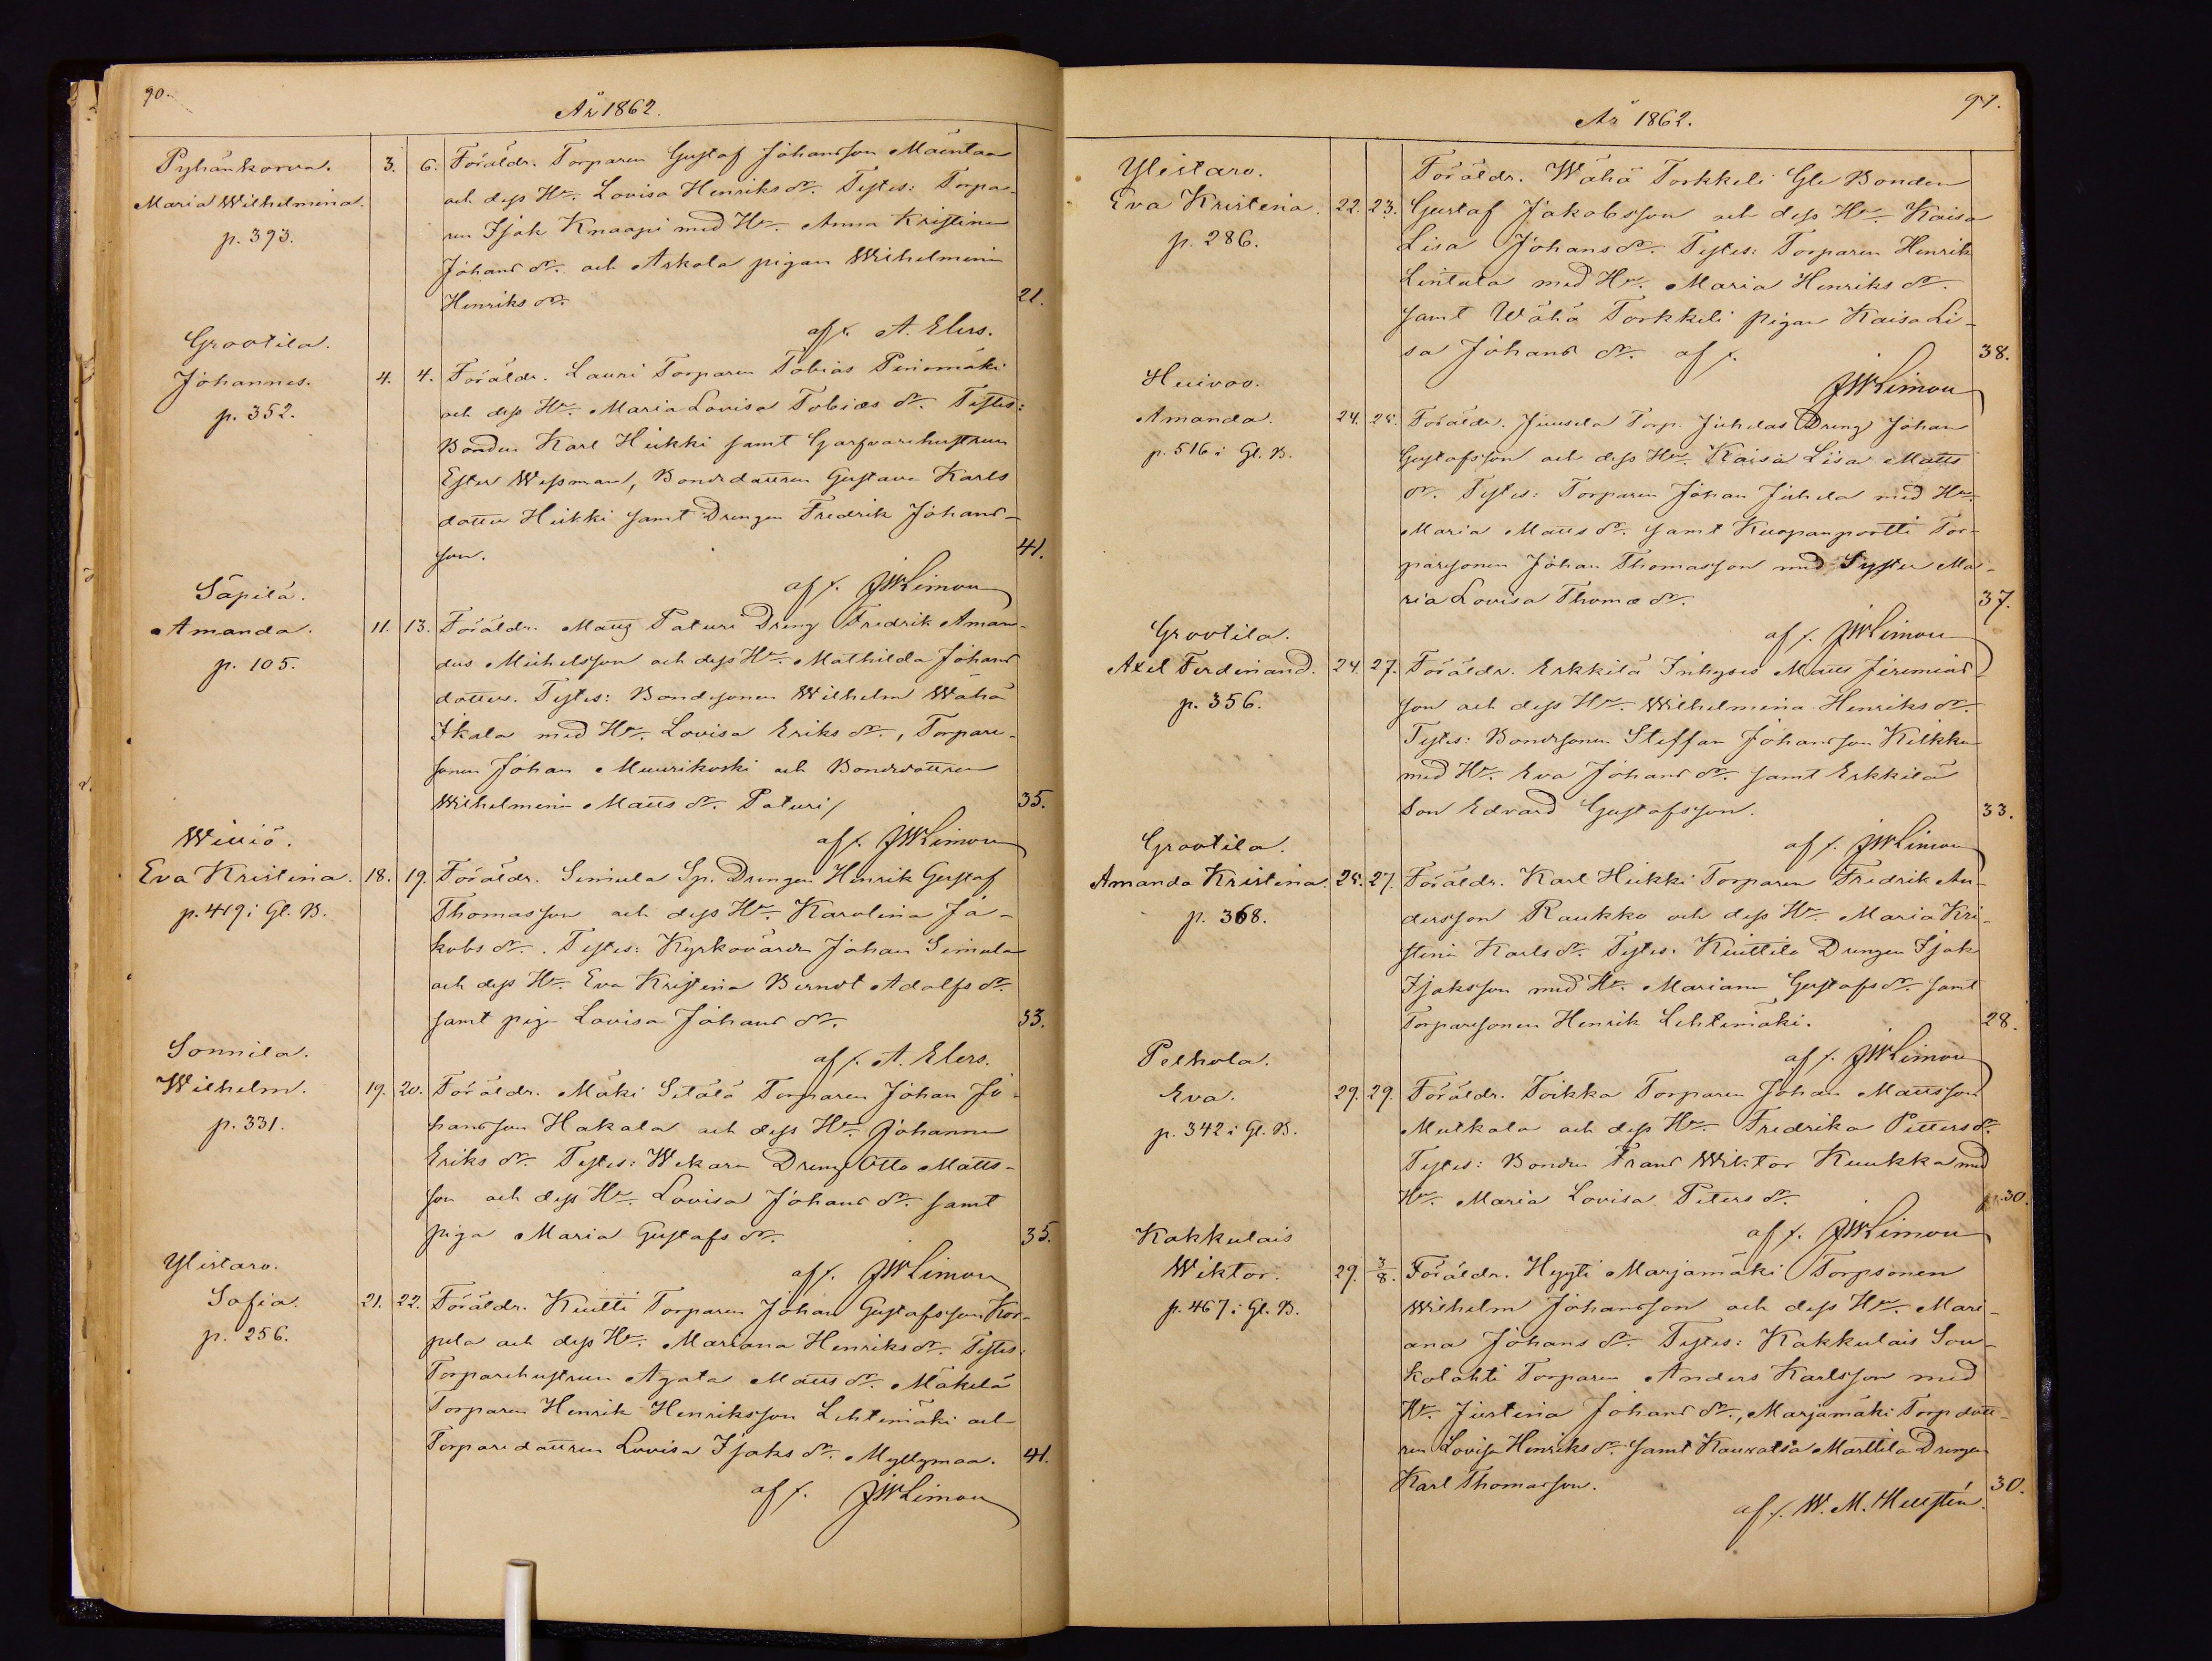 90.
År 1862.
Pyhänkorva.
Maria Wilhelmina.
p. 393.
3. 6. Föräldr. Torparen Gustaf Johansson Mäentaa
och dess Hu. Lovisa Henriks dr. Testes: Torpa-
ren Isak Knaapi med Hu. Anna Kristina
Johans dr. och Askola pigan Wilhelmina
Henriks dr. 21.
af f. A. Elers.
Grootila.
Johannes.
p. 352.
4. 4. Föräldr. Lauri Torparen Tobias Peniomäki
och dess Hu. Maria Lovisa Tobias dr. Testes:
Bonden Karl Heikki samt Garfvarehustrun
Ester Wessman, Bondedottren Gustava Karls
dotter Heikki samt Drengen Fredrik Johans-
son. 41.
af f. JWLimon
Säpilä.
Amanda.
p. 105.
11. 13. Föräldr. Matts Paturi Dreng Fredrik Aman-
dus Michelsson och dess Hu. Mathilda Johans
dotter. Testes: Bondesonen Wilhelm Wähä
Ikala med Hu. Lovisa Eriks dr., Torpare-
sonen Johan Muurikoski och Bondedottren
Wilhelmina Matts dr. Paturi, 35.
af f. JWLimon
Wiiviö.
Eva Kristina.
p. 419 i Gl. B.
18. 19. Föräldr. Simula Sp. Drengen Henrik Gustaf
Thomasson och dess Hu. Karolina Ja-
kobs dr. Testes: Kyrkovärden Johan Simula
och dess Hu. Eva Kristina Berndt Adolfs dr.
samt piga Lovisa Johans dr. 33.
af f. A. Elers.
Sonnila.
Wilhelm.
p. 331.
19. 20. Föräldr. Mäki Setälä Torparen Johan Jo-
hansson Hakala och dess Hu. Johanna
Eriks dr. Testes: Wekara Dreng Otto Matts-
son och dess Hu. Lovisa Johans dr. samt
piga Maria Gustafs dr. 35.
af f. JWLimon
Ylistaro.
Sofia.
p. 256.
21. 22. Föräldr. Knutti Torparen Johan Gustafsson Kor-
pela och dess Hu. Mariana Henriks dr. Testes:
Torparehustrun Agata Matts dr. Mäkelä
Torparen Henrik Henriksson Lehtimäki och
Torparedottren Lovisa Isaks dr. Myllymaa. 41.
af f. JWLimon
91.
År 1862.
Ylistaro.
Eva Kristina.
p. 286.
Föräldr. Wähä Torkkeli Gle Bonden
22. 23. Gustaf Jakobsson och dess Hu. Kaisa
Lisa Johans dr. Testes: Torparen Henrik
Lintula med Hu. Maria Henriks dr.
samt Wähä Torkkeli pigan Kaisa Li-
sa Johans dr. af f. 38.
JWLimon
Huivoo.
Amanda.
p. 516 i Gl. B.
24. 25. Föräldr. Juusela Torp. Juhelas Dreng Johan
Gustafsson och dess Hu. Kaisa Lisa Matts
dr. Testes: Torparen Johan Juhela med Hu.
Maria Matts dr. samt Kuopanportti Tor-
paresonen Johan Thomasson med Syster Ma-
ria Lovisa Thomæ dr. 37.
af f. JWLimon
Grootila.
Axel Ferdinand.
p. 356.
24. 27. Föräldr. Erkkilä Inhyses Matts Jeremias-
son och dess Hu. Wilhelmina Henriks dr.
Testes: Bondesonen Steffan Johansson Kilkku
med Hu. Eva Johans dr. samt Erkkilä
Son Edvard Gustafsson. 33.
af f. JWLimon
Grootila.
Amanda Kristina.
p. 368.
25. 27. Föräldr. Karl Heikki Torparen Fredrik An-
dersson Raukko och dess Hu. Maria Kri-
stina Karls dr. Testes: Knuttila Drengen Isak
Isaksson med Hu. Mariana Gustafs dr. samt
Torparesonen Henrik Lehtimäki. 28.
af f. JWLimon
Pelhola.
Eva.
p. 342 i Gl. B.
29. 29. Föräldr. Toikka Torparen Johan Mattsson
Metkala och dess Hu. Fredrika Petters dr.
Testes: Bonden Frans Wiktor Kuukka med
Hu. Maria Lovisa Peters dr. 30.
af f. JWLimon
Kakkulais
Wiktor.
p. 467 i Gl. B.
29. 3/8. Föräldr. Hyyti Marjamäki Torpsonen
Wilhelm Johansson och dess Hu. Mari-
ana Johans dr. Testes: Kakkulais Sou-
kolahti Torparen Anders Karlsson med
Hu. Justina Johans dr., Marjamäki Torpdott-
ren Lovisa Henriks dr. samt Kauvatsa Marttila Drengen
Karl Thomasson. 30.
af f. W. M. Hellstén.